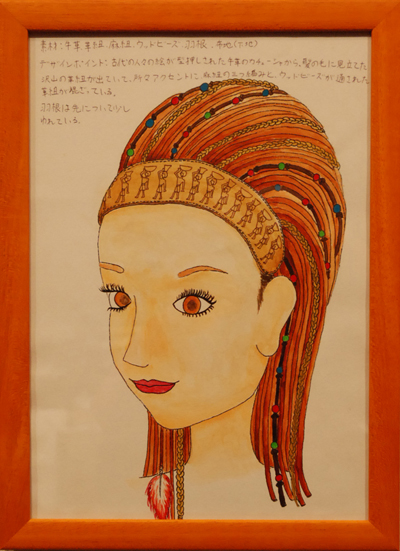 素材:牛革 革紐 麻紐 ウッドビーズ 羽根 布地(土台)
デザインポイント:古代の人々の絵が型押しされた牛革のカチューシャから、髪の毛に見立てた
沢山の革紐が出ていて、所々アクセントに麻紐の三つ編みと、ウッドビーズが通された
革紐が混ざっている。
羽根は先に
われている。